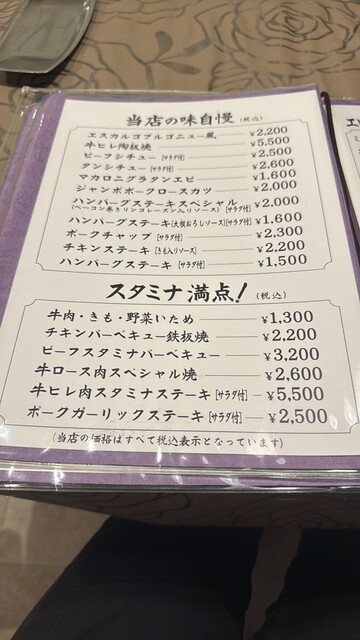 当店の味自慢 (税込)
エスカルゴブルゴニュー風 ¥2,200
牛ヒレ陶板焼 ¥5,500
ビーフシチュー [サラダ付] ¥2,500
タンシチュー [サラダ付] ¥2,600
マカロニグラタンエビ ¥1,600
ジャンボポークロースカツ ¥2,000
ハンバーグステーキスペシャル ¥2,000
(ベーコン巻きリンゴレーズン入りソース) [サラダ付]
ハンバーグステーキ(大根おろしソース)[サラダ付] ¥1,600
ポークチャップ [サラダ付] ¥2,300
チキンステーキ [きも入りソース] ¥2,200
ハンバーグステーキ [サラダ付] ¥1,500
スタミナ満点! (税込)
牛肉・きも・野菜いため ¥1,300
チキンバーベキュー鉄板焼 ¥2,200
ビーフスタミナバーベキュー ¥3,200
牛ロース肉スペシャル焼 ¥2,600
牛ヒレ肉スタミナステーキ [サラダ付] ¥5,500
ポークガーリックステーキ [サラダ付] ¥2,500
(当店の価格はすべて税込表示となっています)